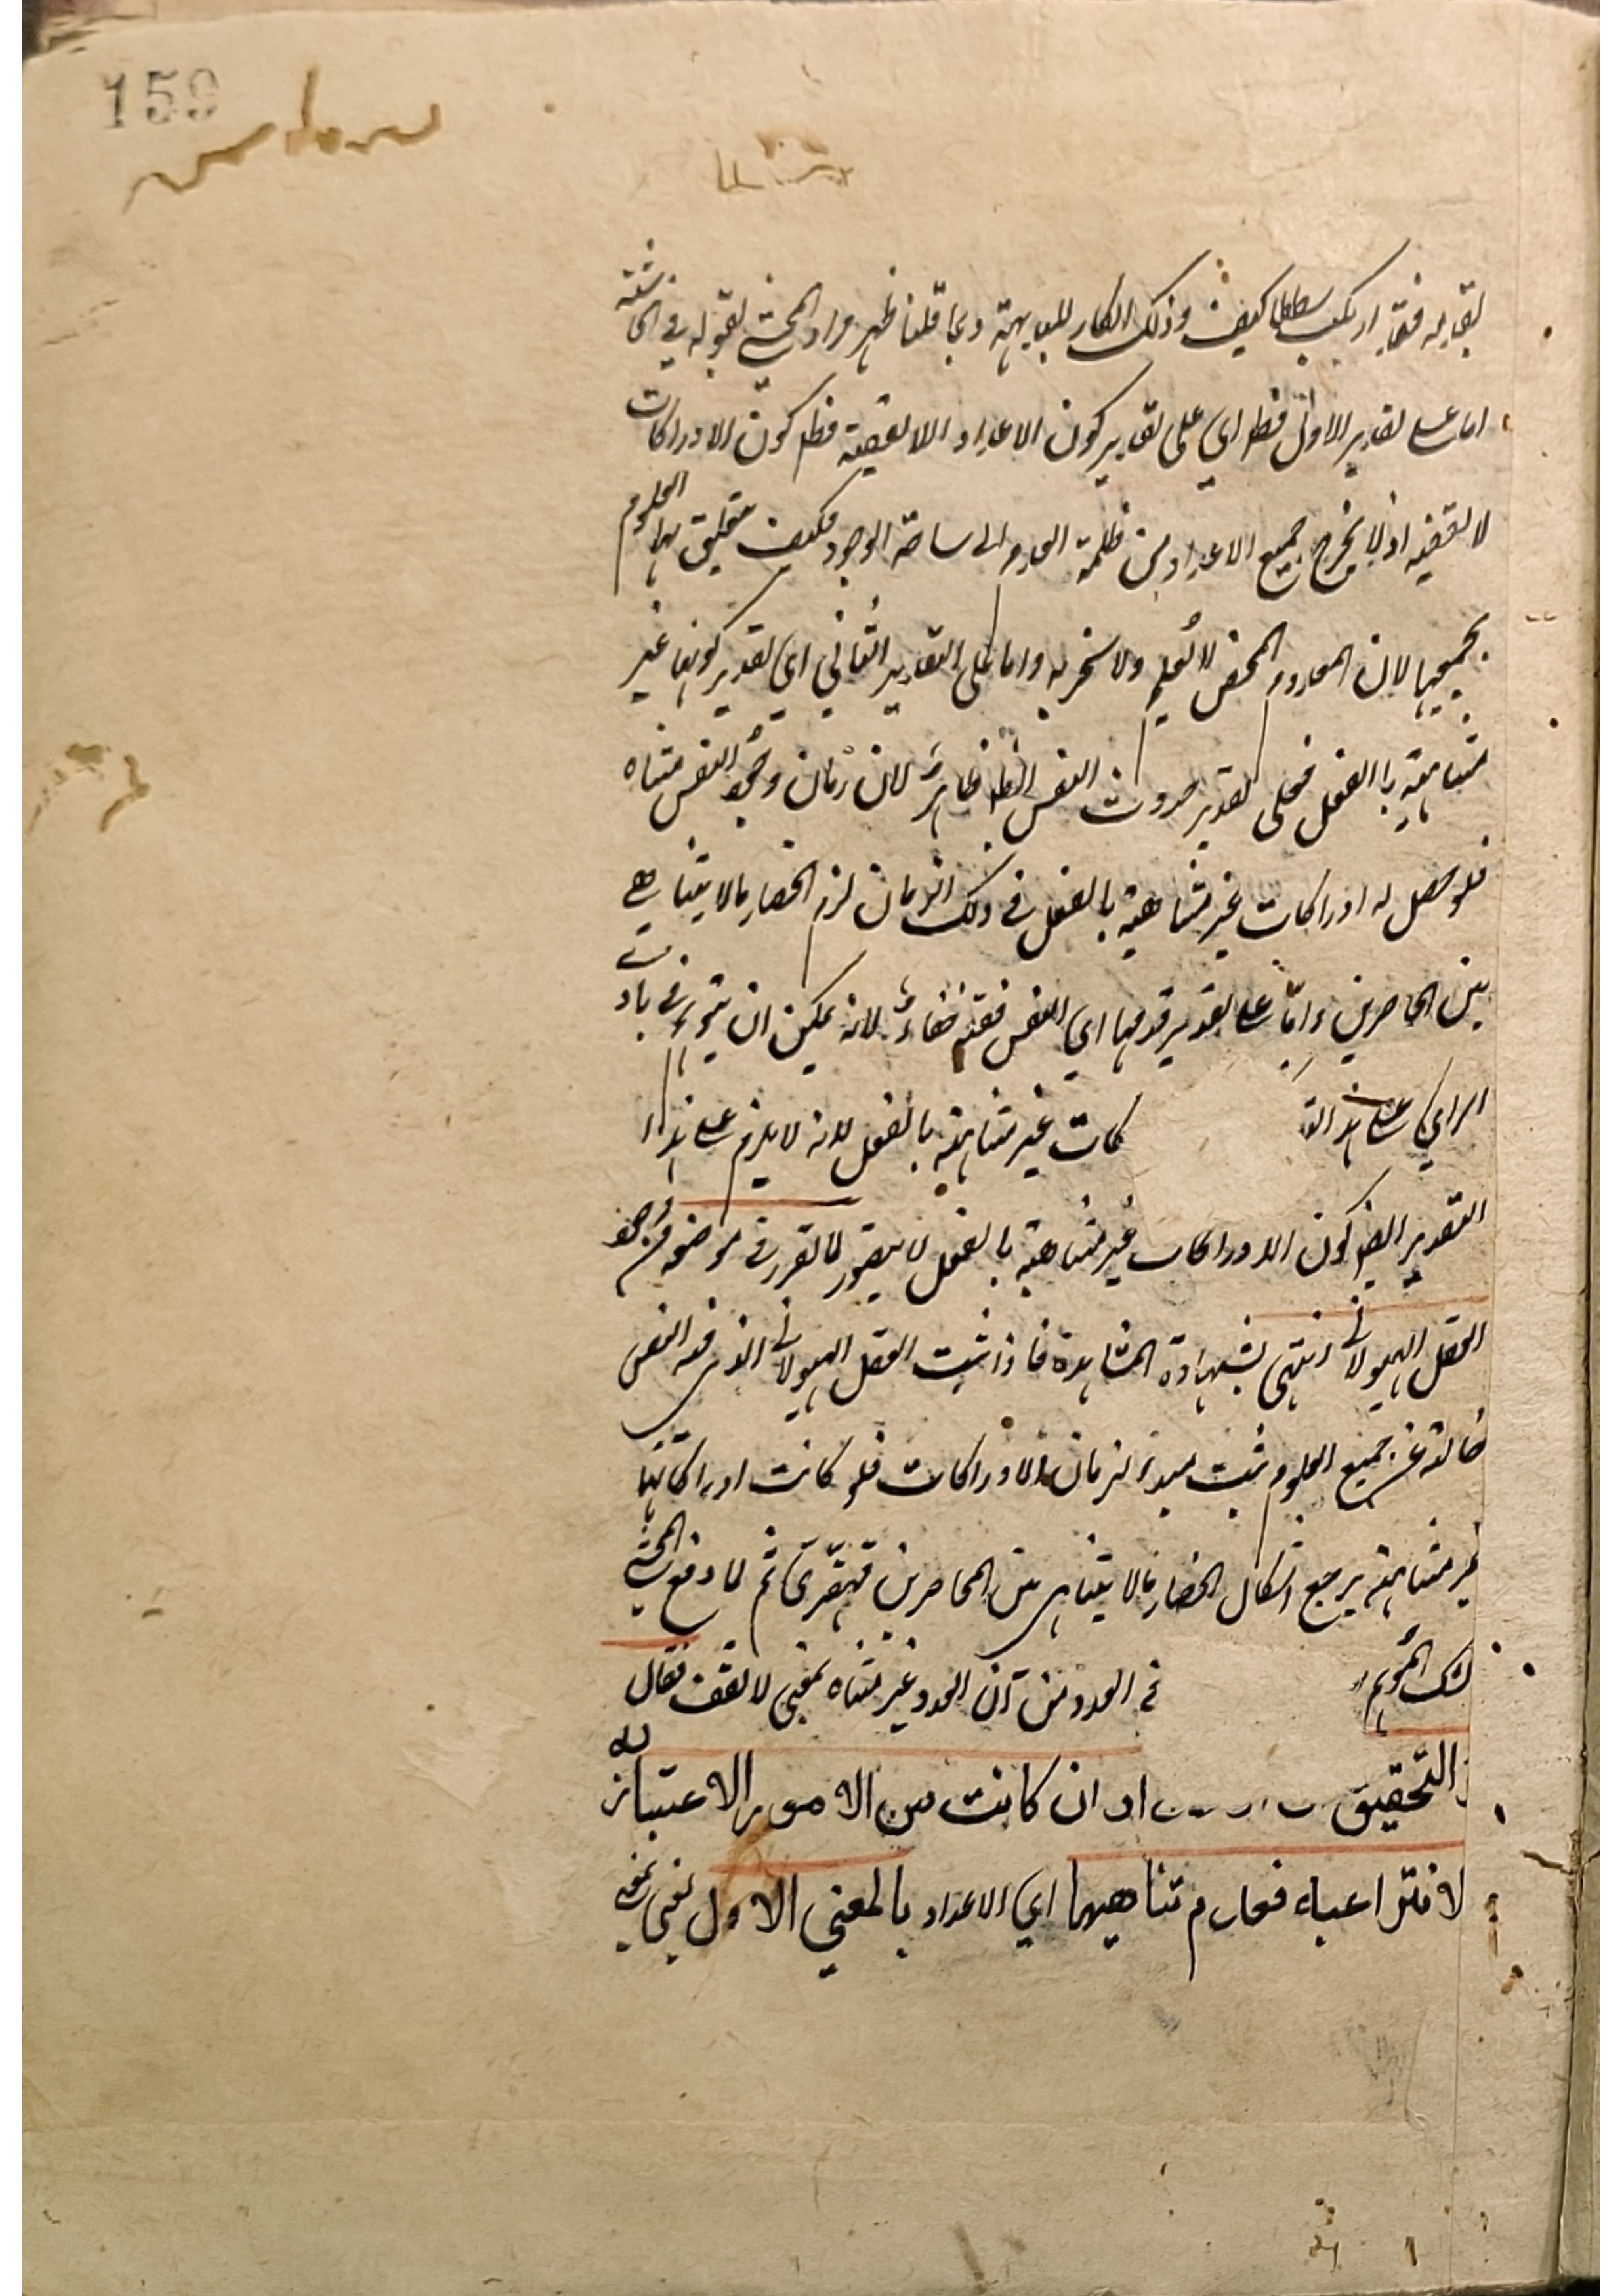 159
بقابله فقد ارتكب شططا كيف وذلك انكار للبداهة وبما قلنا ظهر مراد المحشي بقوله في الحاشية
اما على تقدير الاول فظ اي على تقدير كون الاعداد اللا تقفية فظ كون الادراكات
لا تقفية اذ لا يخرج جميع الاعداد من ظلمة العدم الى ساحة الوجود فكيف يتعلق بها العلوم
بجميعها لان المعدوم المحض لا يعلم ولا يخبر به واما على التقدير الثاني اي تقدير كونها غير
متناهية بالفعل فعلى تقدير حدوث النفس ايضا ظاهر لان زمان وجود النفس متناه
فلو حصل له ادراكات غير متناهية بالفعل في ذلك الزمان لزم انحصار ما لا يتناهى
بين الحاصرين واما على تقدير قدمها اي النفس ففيه خفاء لانه يمكن ان يتوهم في بادي
الراي على هذا كات غير متناهية بالفعل لانه لا يلزم على هذا
التقدير ايضا كون الادراكات غير متناهية بالفعل لا يتصور لما تقرر في موضعه من وجود
العقل الهيولاني انتهى بشهادة المشاهدة فاذا ثبت العقل الهيولاني الذي فيه النفس
خالية عن جميع العلوم ثبت مبدء لزمان الادراكات فلو كانت ادراكاتها
غير متناهية يرجع اشكال انحصار ما لا يتناهى بين الحاصرين قهقرى ثم لما دفع المحشي
ذلك التوهم في العدد من ان العدد غير متناه بمعنى لا تقف فقال
التحقيق ان كانت من الامور الاعتبارية
الانتزاعية فعدم تناهيها اي الاعداد بالمعنى الاول يعني بمعنى